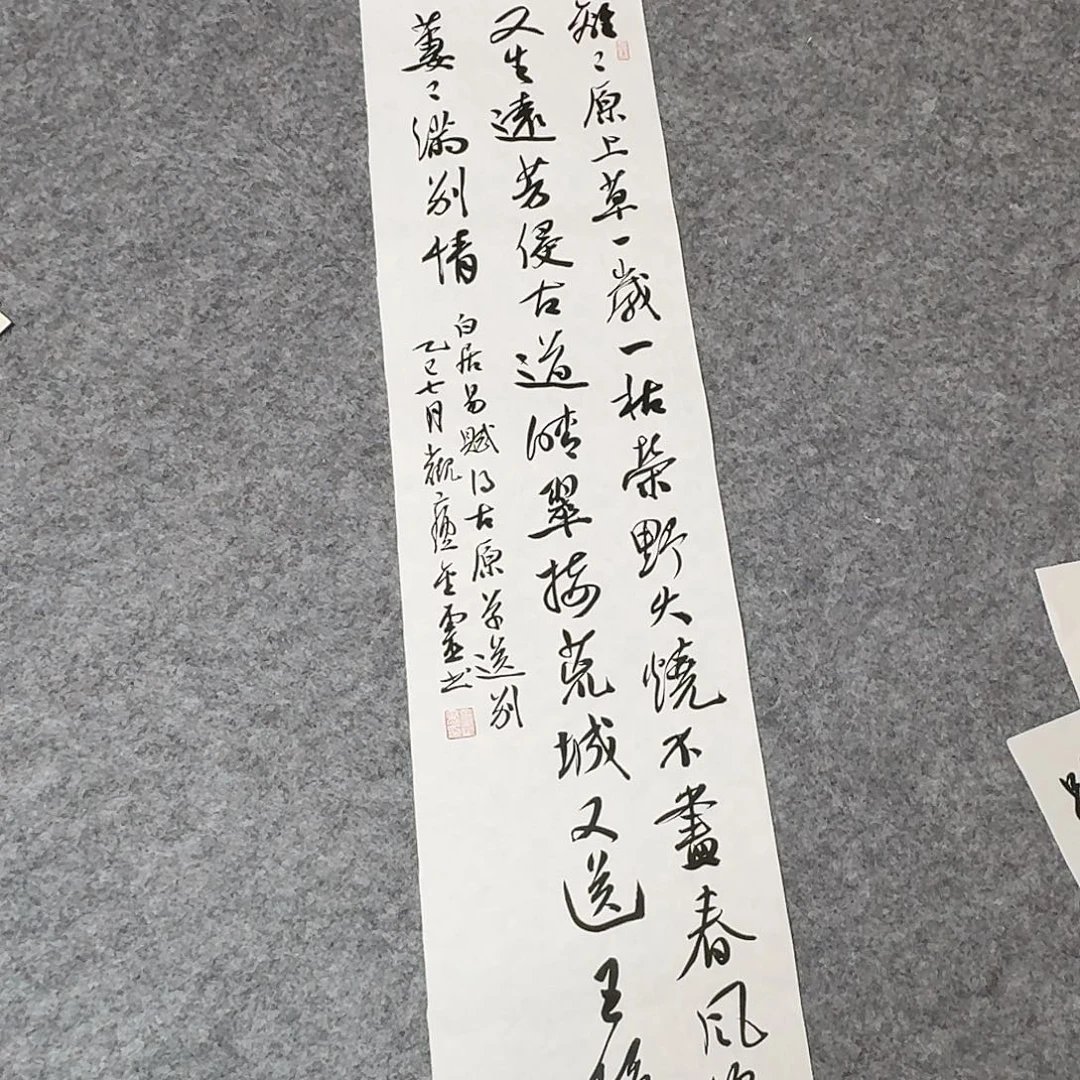 離〻原上草一歲一枯榮野火燒不盡春風吹
又生遠芳侵古道晴翠接荒城又送王孫
萋〻滿別情
白居易賦得古原草送別
乙巳七月觀
書